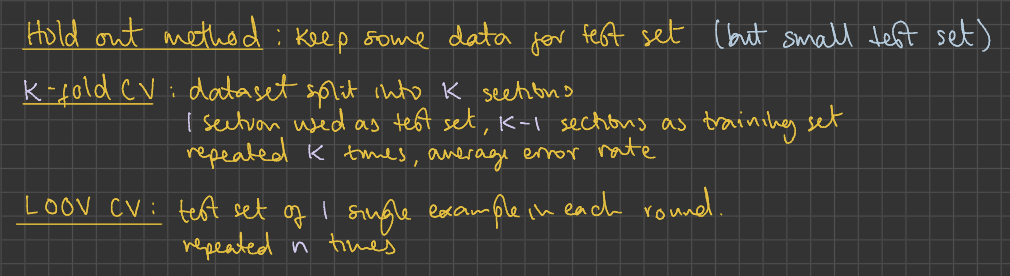 Hold out method : Keep some data for test set (but small test set)
K-fold CV : dataset split into K sections
1 section used as test set, K-1 sections as training set
repeated K times, average error rate
LOOV CV : test set of 1 single example in each round.
repeated n times